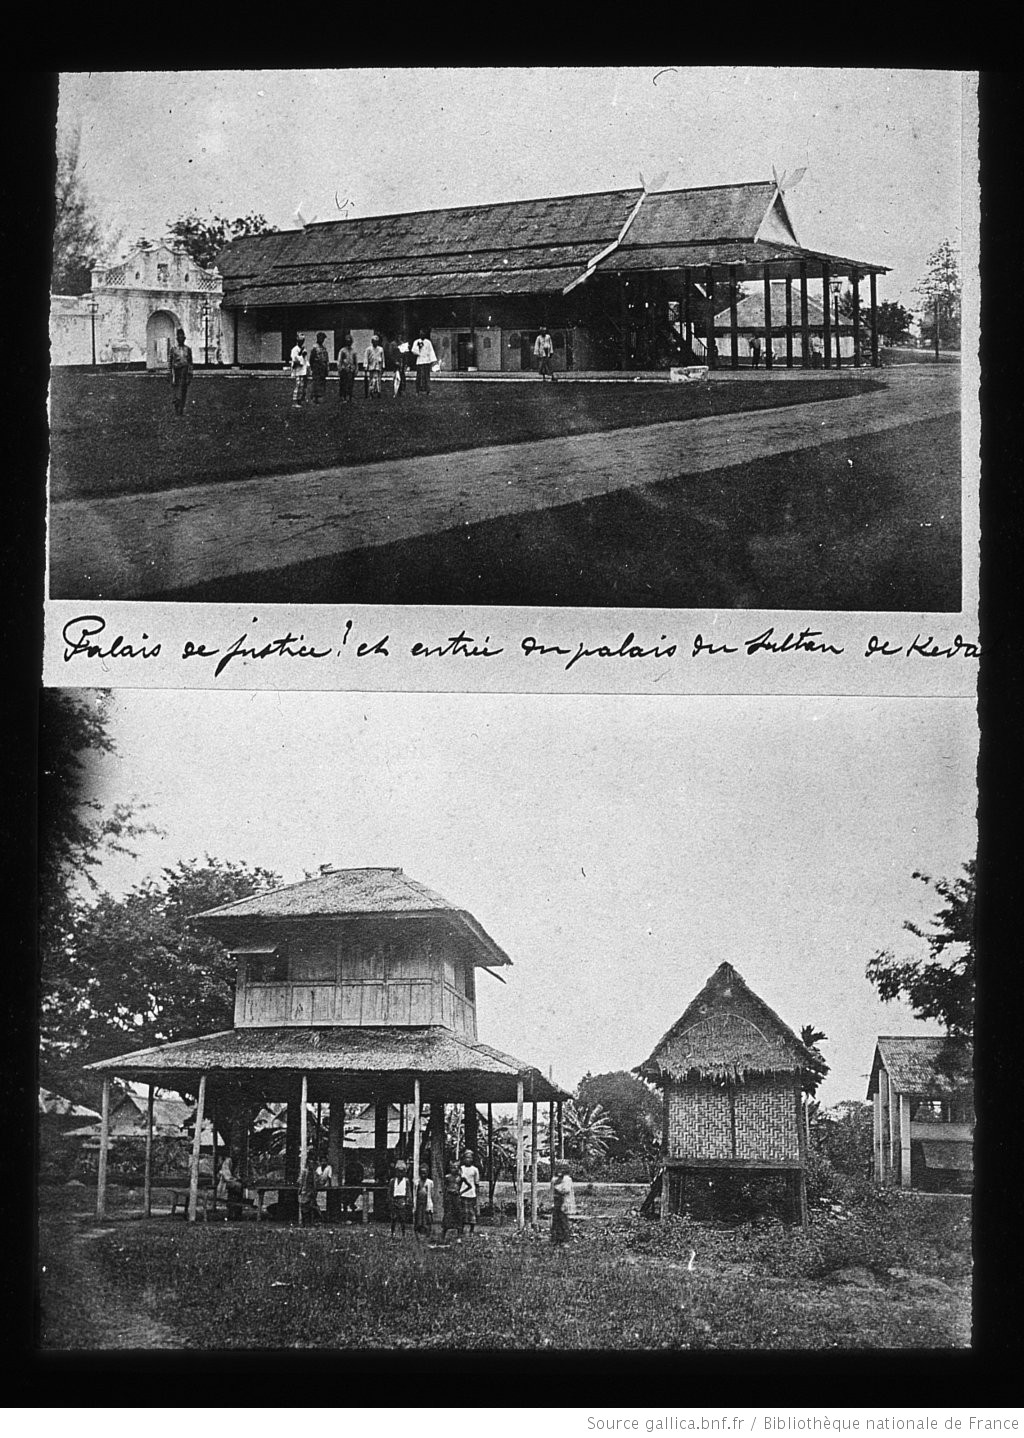 Palais de justice! et entrée du palais du Sultan de Keda
Source gallica.bnf.fr / Bibliothèque nationale de France